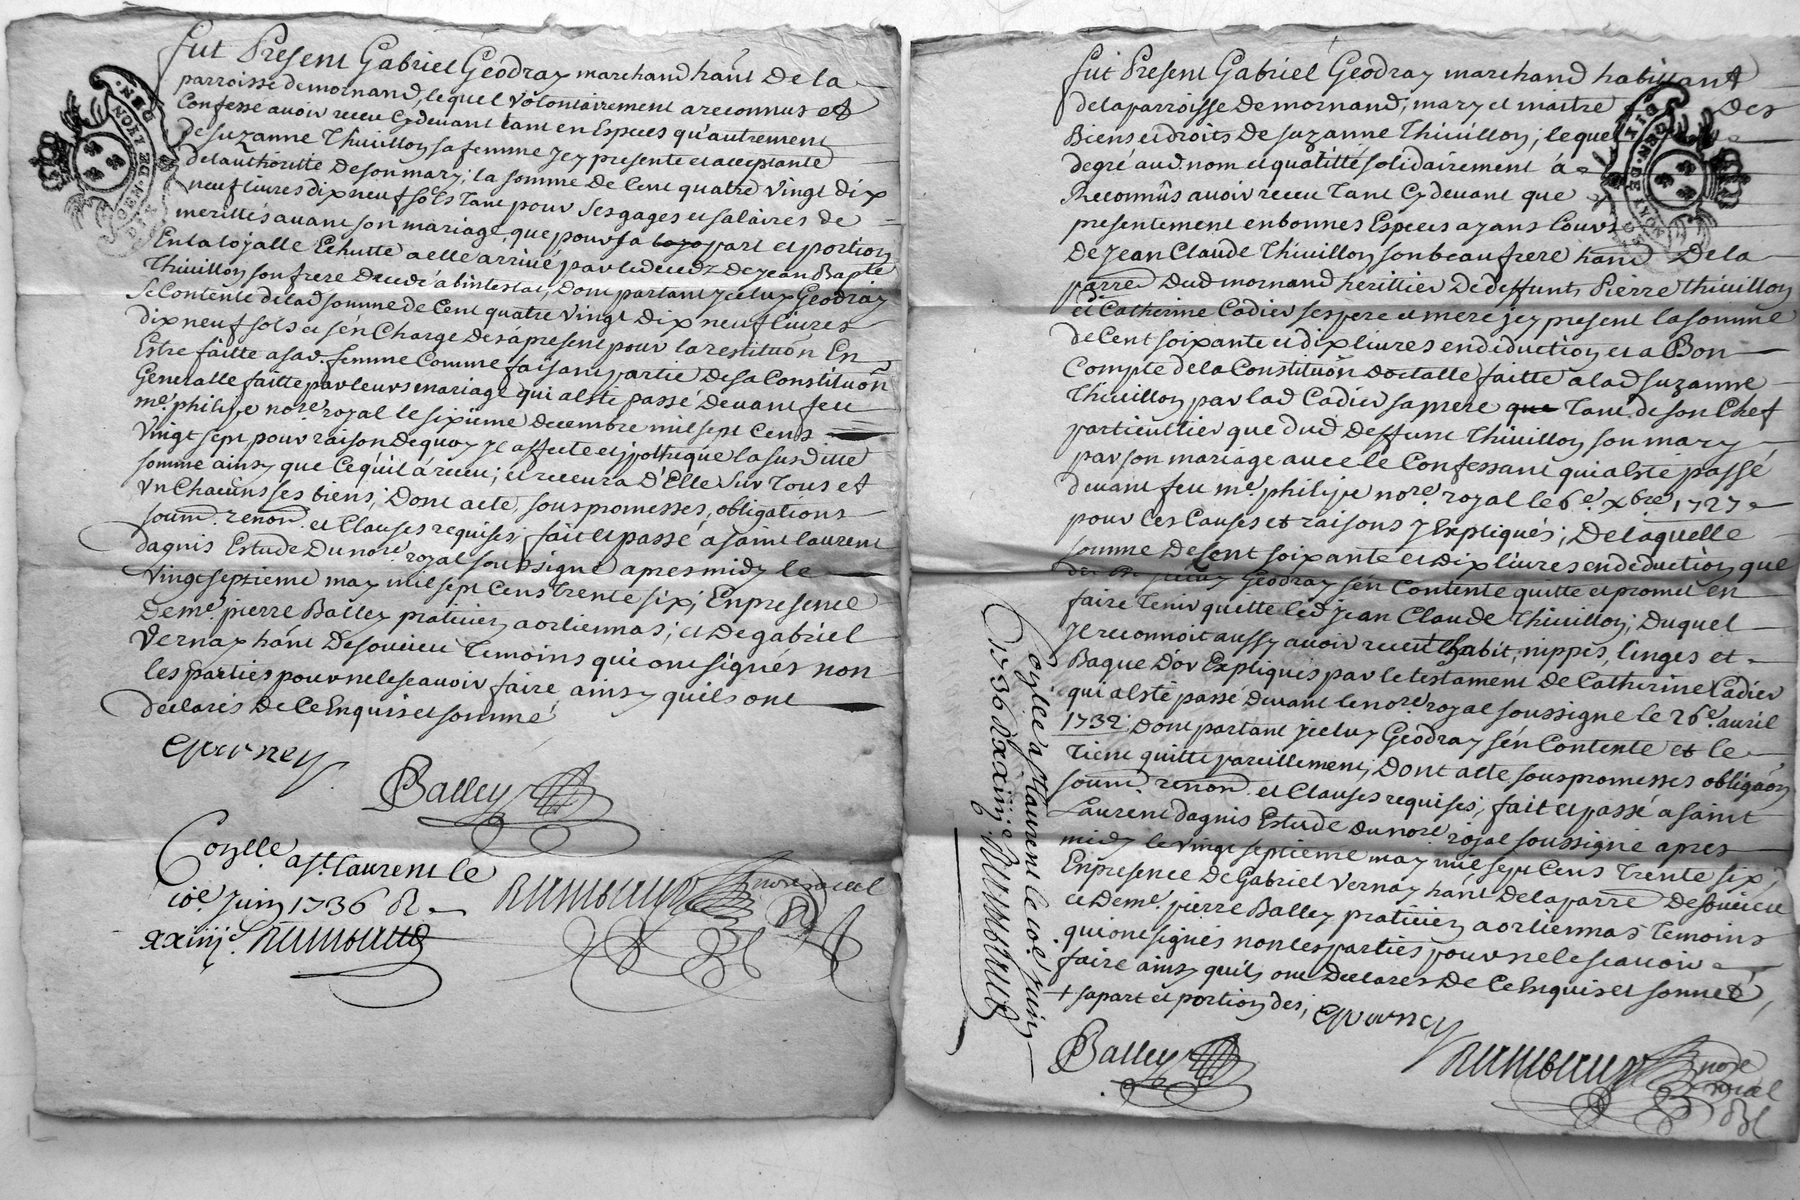 fut Present Gabriel Geodray marchand hãnt De la
parroisse de mornand, lequel volontairement a reconnus et
Confessé avoir receu Cy devant tant en Especes qu'autrement
de Suzanne Thivillon sa femme Jcy presente et acceptante
de l'authoritté De son mary; la somme De Cent quatre vingt dix
neuf livres dix neuf sols Tant pour Ses gages et salaires de
merittés avant son mariage, que pour sa part et portion
En la loyalle Echutte a elle arrivé par le decedz De Jean Bapte
Thivillon son frere decedé abintestat, Dont partant Jceluy Geodray
Se Contente de lad somme de Cent quatre vingt Dix neuf livres
dix neuf sols et s'en Charge des apresent pour la restituõn En
Estre faitte a sad. femme Comme faisant partie De sa Constituõn
Generalle faitte par leurs mariage qui a lste passé Devant feu
me. philipe nore. royal le sixieme decembre mil sept Cens
vingt sept pour raison De quoy Jl affecte et jpotheque la susditte
somme ainsy que Ce qu'il a receu; et recevra D'Elle sur Tous et
vn Chacuns ses biens; Dont acte, sous promesses, obligations
soumõ. renonõ. et Clauses requises; fait et passé a saint laurent
dagnis Estude Du nore. royal soussigné apres midy le
vingt septieme may mil sept Cens trente six; En presence
De me. pierre Balley praticien a orliennas; et De gabriel
Vernay hãnt De soucieu Temoins qui ont signés non
les parties pour ne le scavoir faire ainsy quils ont
declarés De Ce Enquis et sommé
GVerney
Balley
Coñlle. a st. laurent le
10e. Juin 1736 R
xxiiije.
nore royal
DEN.
GEN. DE LYON
fut Present Gabriel Geodray marchand habittant
de la parroisse De mornand; mary et maitre Des
Biens et droits de suzanne Thivillon; lequel
degré aud. nom et qualitté solidairement a
Reconnüs avoir receu Tant Cy devant que
presentement en bonnes Especes ayans Cours
De Jean Claude Thivillon son beau frere hãnt De la
parre Dud mornand herittier De deffunt, Pierre thivillon
et Catherine Cadier ses pere et mere jcy present la somme
de Cent soixante et dix livres en deduction et a Bon
Compte de la Constituõn faitte a lad suzanne
Thivillon par lad Cadier sa mere Tant de son Chef
particullier que dud deffunt Thivillon son mary
par son mariage avec le Confessant qui a lste passé
devant feu me. philipe nore. royal le 6e. xbre 1727
pour Les Causes et raisons y Expliqués; De laquelle
somme De Cent soixante et Dix livres en deduction que
Jceluy Geodray s'en Contente quitte et promet en
faire Tenir quitte led Jean Claude Thivillon; Duquel
Jl reconnoit aussy avoir receu habit, nippes, linges et
Bague D'or Expliqués par le testament De Catherine Cadier
qui a lste passé Devant le nore. royal soussigne le 26e. avril
1732; Dont partant jceluy Geodray s'en Contente et le
Tient quitte pareillement; Dont acte sous promesses obligãon
soumõ renonõ. et Clauses requises; fait et passé a saint
Laurent dagnis Estude du nore. royal soussigné apres
midy le vingt septieme may mil sept Cens Trente six;
En presence De Gabriel Vernay hãnt De la parre De soucieu
et De me. pierre Balley praticien a orliennas Temoins
qui ont signés non les parties pour ne le scavoir
faire ainsy quils ont Declarés De Ce Enquis et sommés,
+ sa part et portion des;
GVerney
Balley
nore
royal
Coñlle. a st laurent le 10e. Juin
1736 R xxiiije.